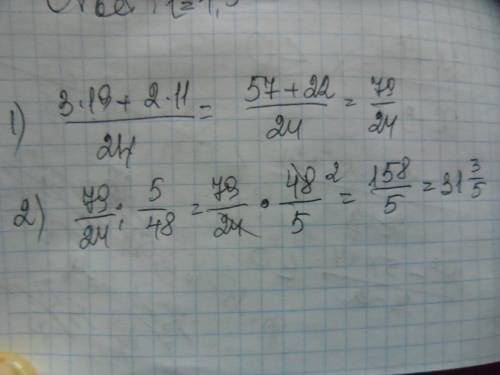 Ответ: 1=1,5
1) (3·19+2·11)/24 = (57+22)/24 = 79/24
2) 79/24 : 5/48 = 79/24 · 48/5 2 = 158/5 = 31 3/5